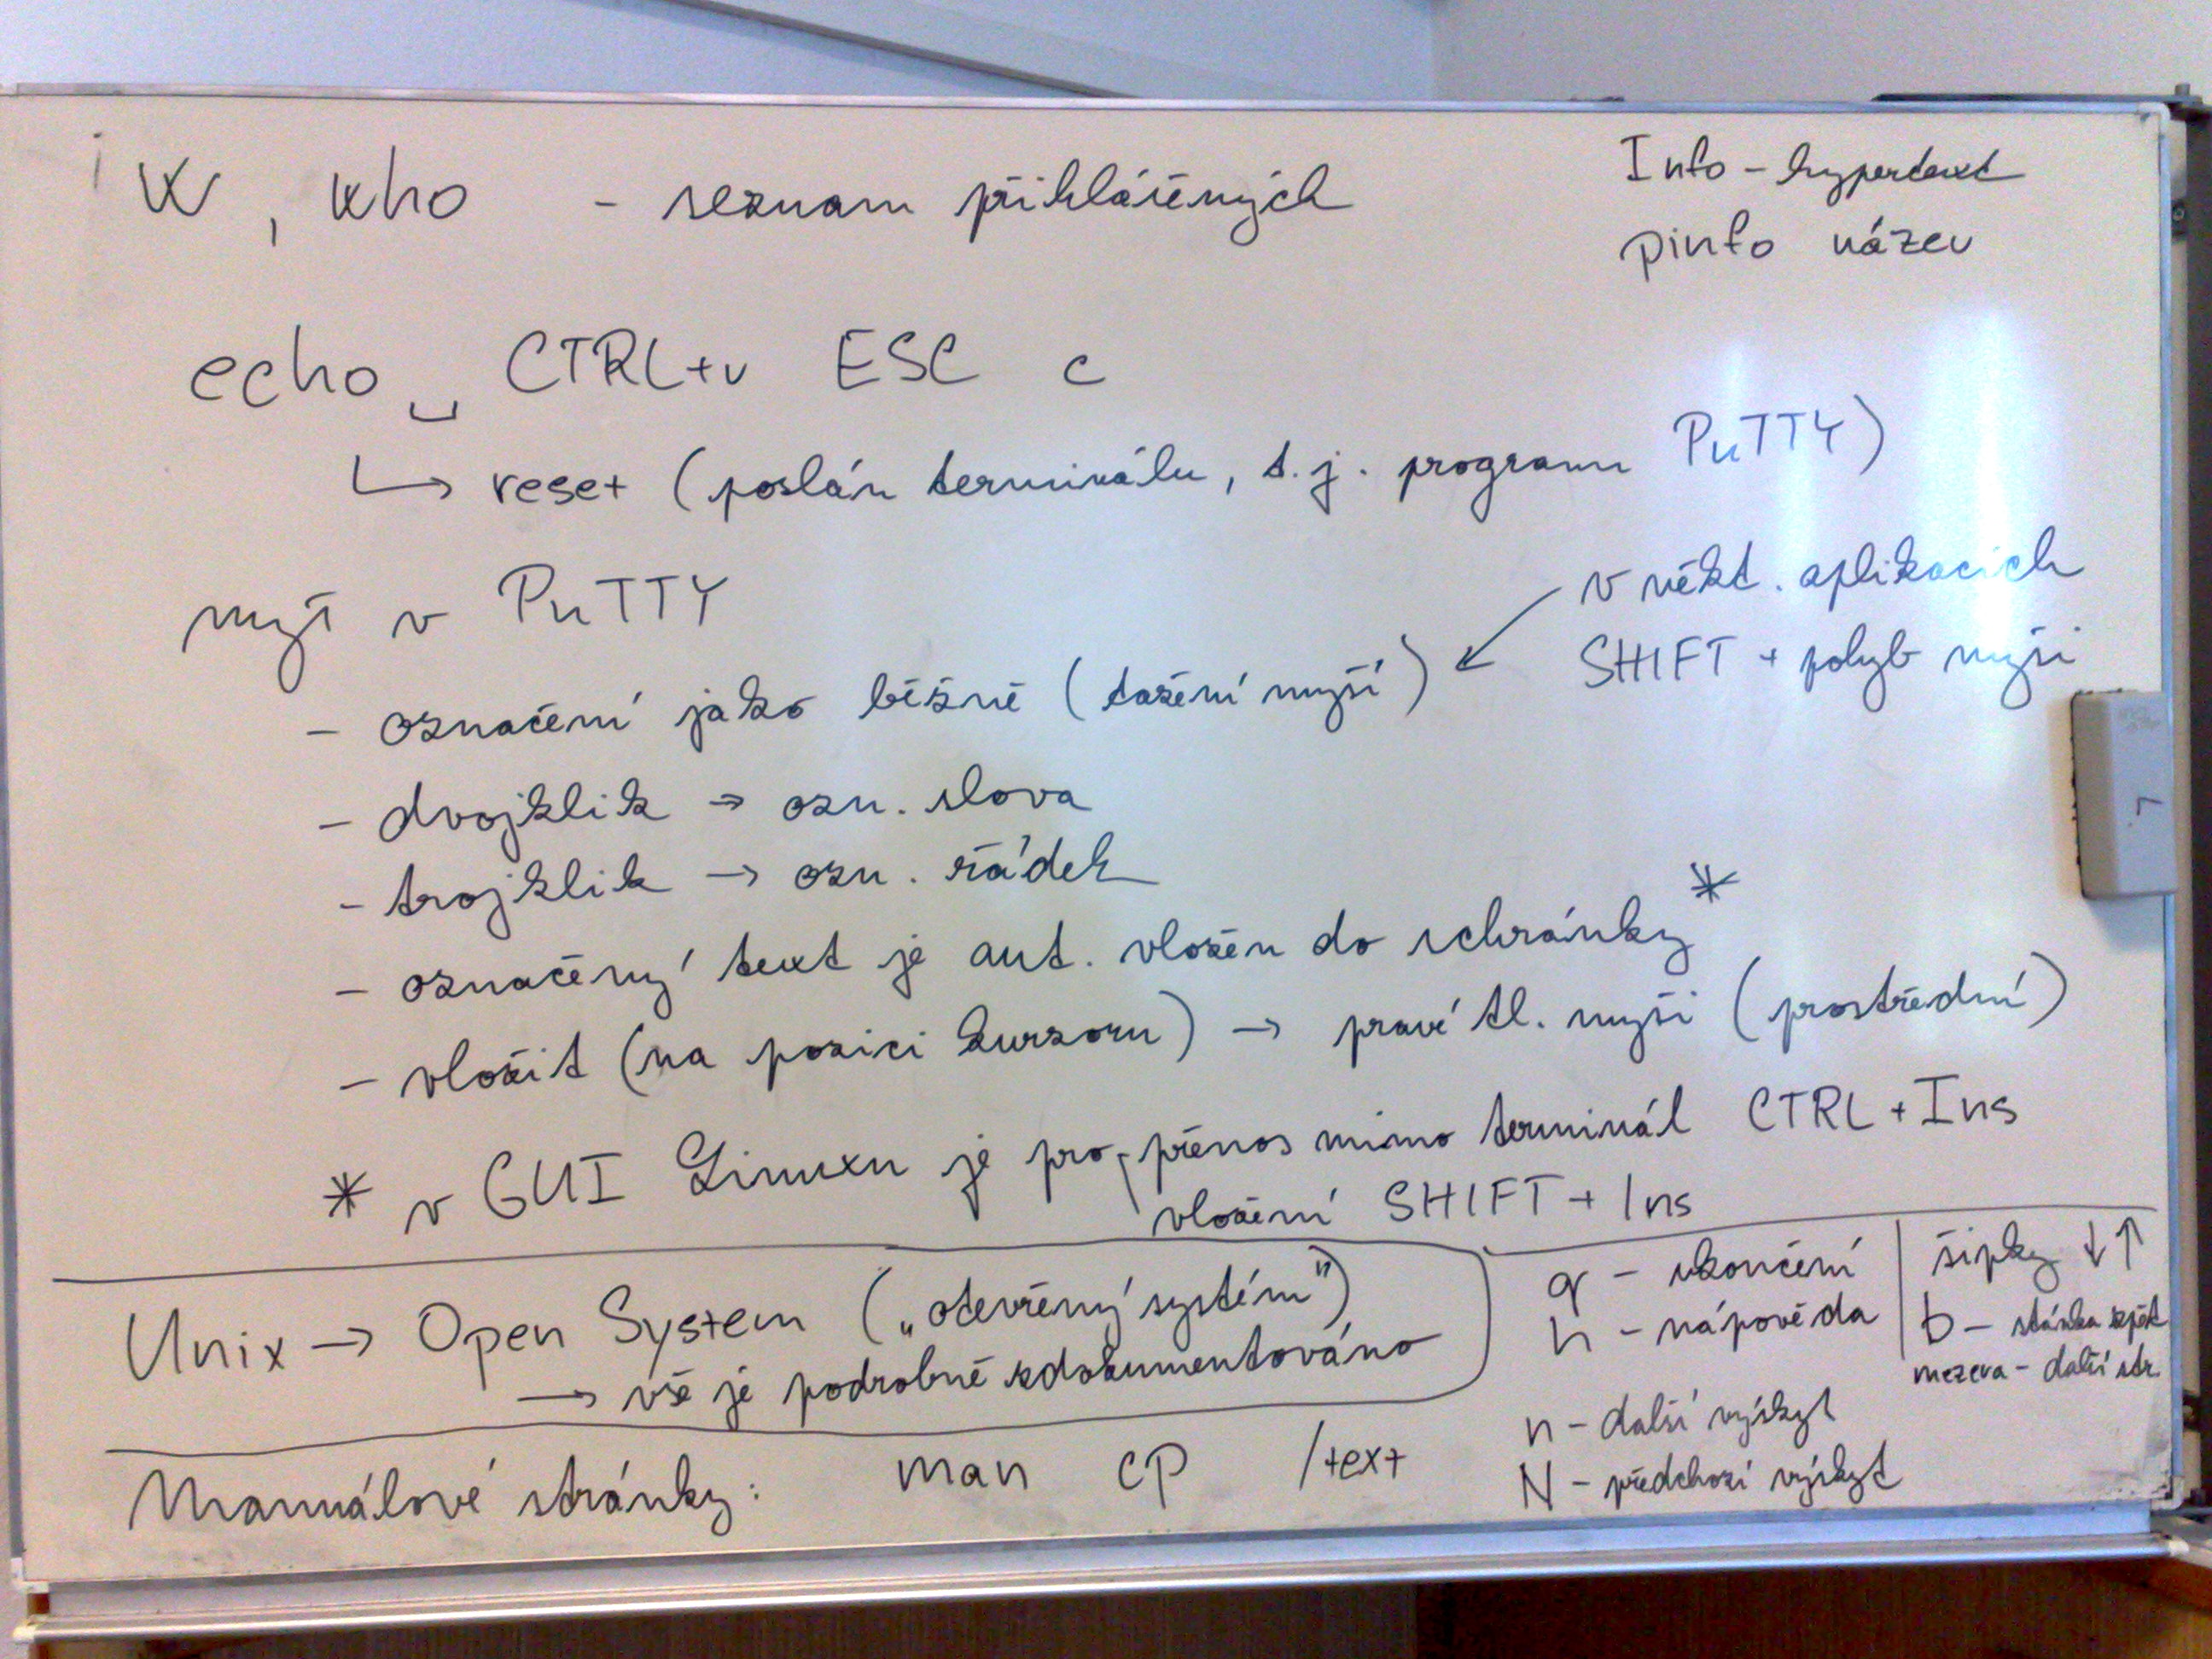 w, who - seznam přihlášených
Info - hypertext
pinfo název
echo␣ CTRL+v ESC c
↳ reset (poslán terminálu, t.j. programu PuTTY)
myš v PuTTY
v někt. aplikacích
SHIFT + pohyb myši
- označení jako běžně (tažení myší) ↙
- dvojklik → ozn. slova
- trojklik → ozn. řádek
- označený text je aut. vložen do schránky*
- vložit (na pozici kurzoru) → pravé tl. myši (prostřední)
* v GUI Linuxu je pro přenos mimo terminál CTRL+Ins
vložení SHIFT + Ins
Unix → Open System („otevřený systém")
→ vše je podrobně zdokumentováno
Manuálové stránky: man cp /text
q - ukončení
h - nápověda
n - další výskyt
N - předchozí výskyt
šipky ↓↑
b - stánka zpět
mezera - další str.